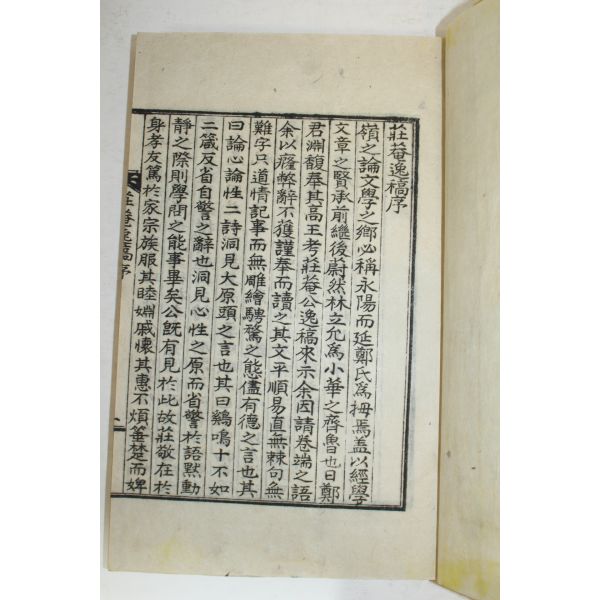 莊菴逸稿序
嶺之論文學之鄉必稱永陽而延鄭氏爲拇焉盖以經學
文章之賢承前繼後蔚然林立允爲小華之齊魯也日鄭
君淵馥奉其高王考莊菴公逸稿來示余因請卷端之語
余以癃弊辭不獲謹奉而讀之其文平順易直無棘句無
難字只道情記事而無雕繪騁驁之態儘有德之言也其
曰論心論性二詩洞見大原頭之言也其曰鷄鳴十不如
二箴反省自警之辭也洞見心性之原而省警於語默動
靜之際則學問之能事畢矣公旣有見於此故莊敬在於
身孝友篤於家宗族服其睦婣戚懷其惠不煩箠楚而婢
莊菴逸稿序
一